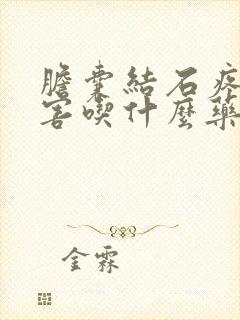 膽囊結石疼
害喫什麼藥
金霖